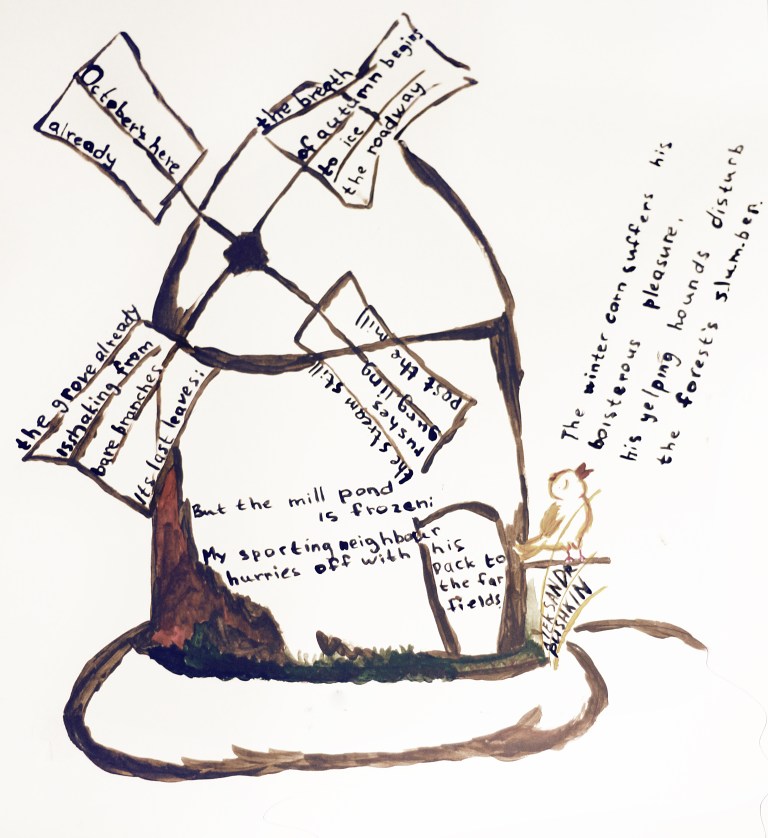 October's here
already
the grove already
is shaking from
bare branches
its last leaves:
the breath
of autumn begins
to ice
the roadway
the stream still
rushes
gurgling
past the mill
But the mill pond
is frozen:
My sporting neighbour
hurries off with his
pack to
the far
fields
The winter corn suffers his
boisterous pleasure,
his yelping hounds disturb
the forest's slumber.
ALEKSANDR
PUSHKIN